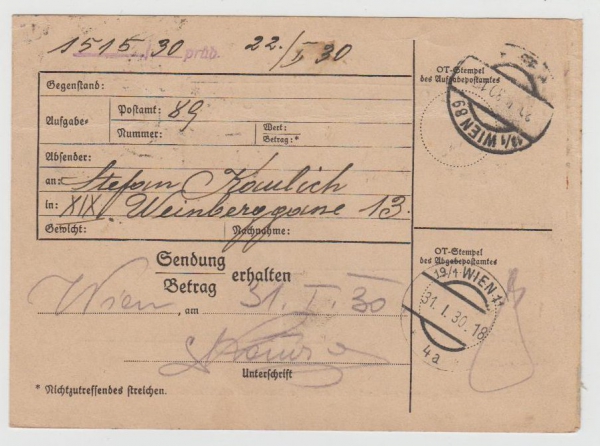 1515 30 prüb. 22./I 30
OT-Stempel
des Aufgabepostamtes
18/1 WIEN 89
Gegenstand:
Aufgabe-
Postamt: 89
Nummer:
Wert:
Betrag:*
Absender:
an: Stefan Kaulich
in: XIX. Weinberggasse 13.
Gewicht: Nachnahme:
Sendung
Betrag
erhalten
OT-Stempel
des Abgabepostamtes
19/1 WIEN
31. I. 30. 18
4a
Wien, am 31. I. 30
Unterschrift
* Nichtzutreffendes streichen.